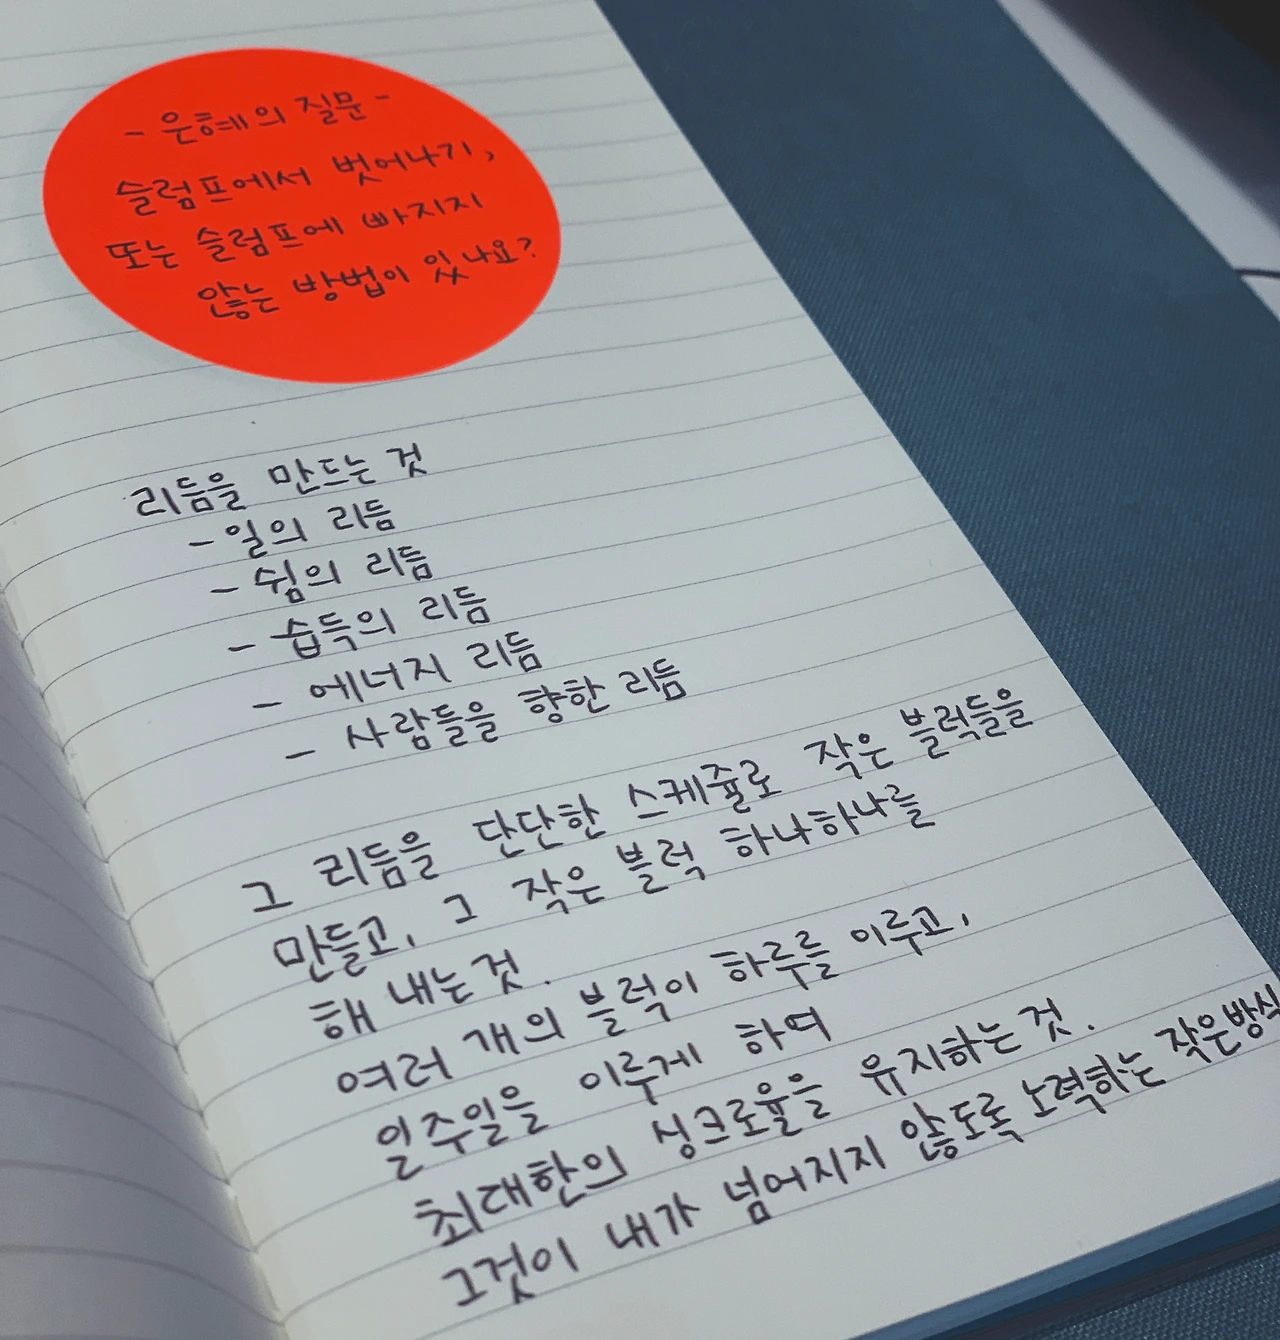 - 은혜의 질문 -
슬럼프에서 벗어나기,
또는 슬럼프에 빠지지
않는 방법이 있나요?
리듬을 만드는 것
- 일의 리듬
- 쉼의 리듬
- 습득의 리듬
- 에너지 리듬
- 사람들을 향한 리듬
그 리듬을 단단한 스케쥴로 작은 블럭들을
만들고, 그 작은 블럭 하나하나를
해 내는 것.
여러 개의 블럭이 하루를 이루고,
일주일을 이루게 하여
최대한의 싱크로율을 유지하는 것.
그것이 내가 넘어지지 않도록 노력하는 작은방식